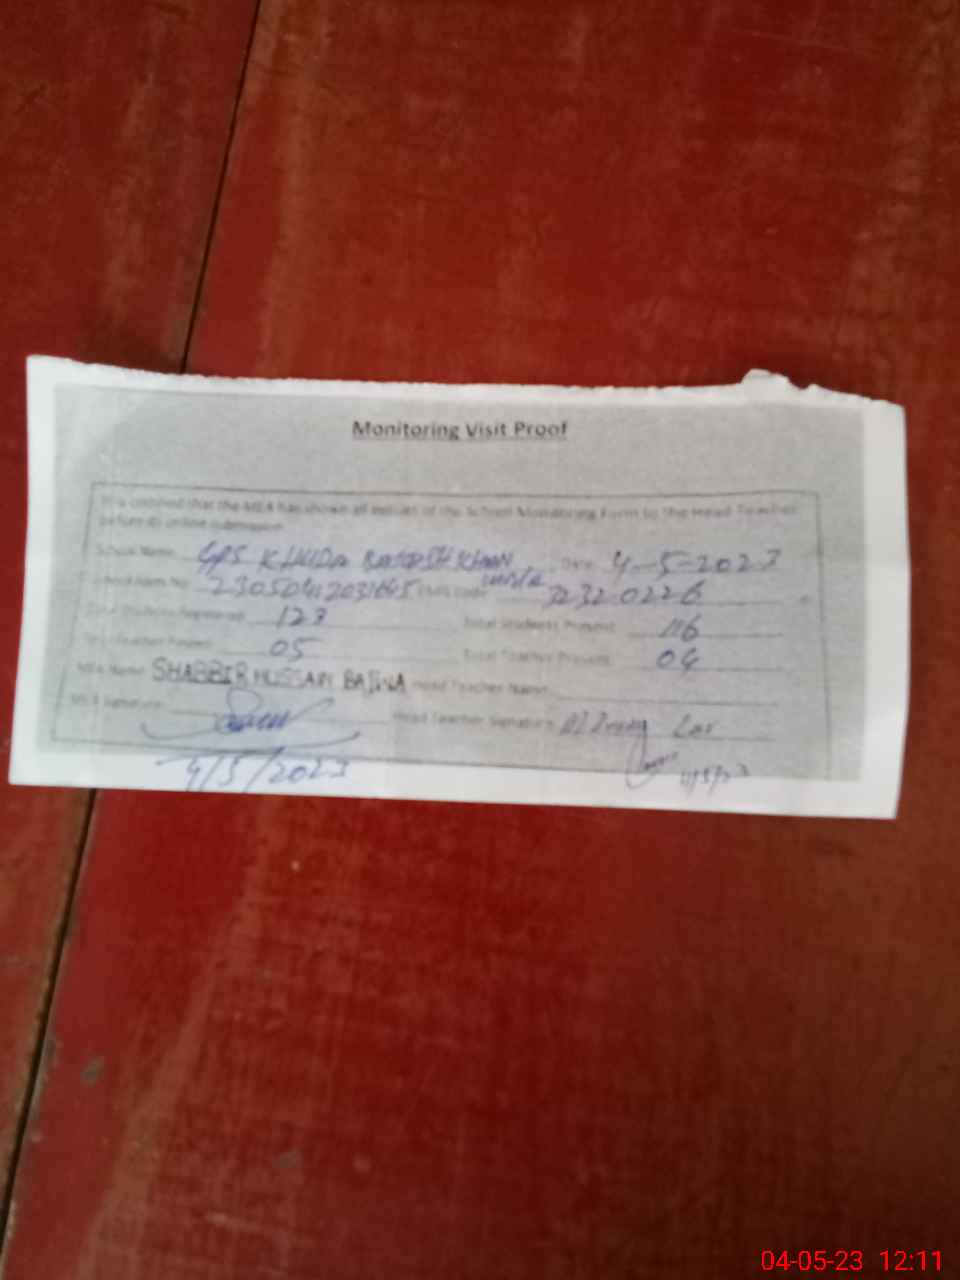 Monitoring Visit Proof
It is certified that the MEA has shown all values of the School Monitoring Form to the Head Teacher
before its online submission.
School Name: GPS KHUDA BAKHSH KHAN Date: 4-5-2023
School Form No: EMIS Code: 32320226
Total Students Registered: 123 Total Students Present: 116
Total Teacher Posted: 05 Total Teacher Present: 04
MEA Name: SHABBIR HUSSAIN Head Teacher Name:
MEA Signature: Head Teacher Signature:
4/5/2023
04-05-23 12:11